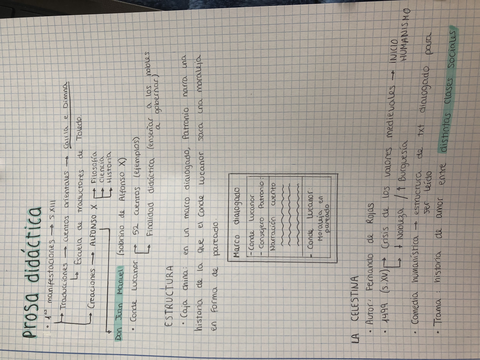 Prosa didáctica
· 1ªs manifestaciones → S.XIII
→ Traducciones → cuentos orientales → Calila e Dimna
↳ Escuela de traductores de Toledo
→ Creaciones → ALFONSO X → Filosofía
Ciencia
Historia
Don Juan Manuel (sobrino de Alfonso X)
· Conde Lucanor → 52 cuentos (ejemplos)
↳ Finalidad didáctica (enseñar a los nobles
a gobernar)
ESTRUCTURA
· Caja china: en un marco dialogado, Patronio narra una
historia de la que el Conde Lucanor saca una moraleja
en forma de pareado
Marco dialogado
- Conde Lucanor
- Consejero Patronio
Narración cuento
- Conde Lucanor
Moraleja en
pareado
LA CELESTINA
· Autor: Fernando de Rojas
· 1499 (S.XV) → Crisis de los valores medievales → INICIO
HUMANISMO
↳ ↓ Nobleza / ↑ Burguesía
· Comedia humanística → estructura de txt dialogado para
ser leído
· Trama: historia de amor entre distintas clases sociales